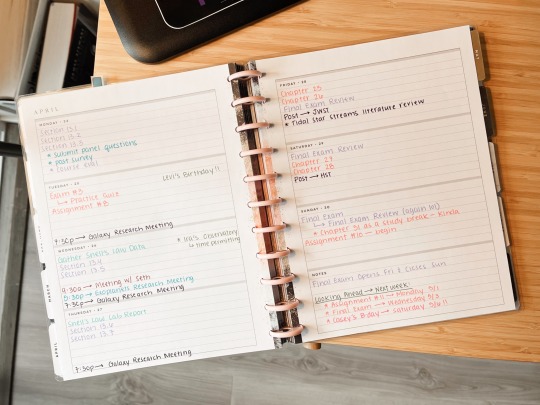 APRIL
MONDAY · 24
Section 13.1
Section 13.2
Section 13.3
* Submit panel questions
* past survey
* course eval
TUESDAY · 25
Levi's Birthday!!
Exam #3
↳ Practice Quiz
Assignment #8
7:30p → Galaxy Research Meeting
WEDNESDAY · 26
* Observatory
↳ time permitting
Gather Snell's Law Data
Section 13.4
Section 13.5
→ Meeting w/ Seth
5:30p → Exoplanets Research Meeting
7:30p → Galaxy Research Meeting
THURSDAY · 27
Snell's Law Lab Report
Section 13.6
Section 13.7
7:30p → Galaxy Research Meeting
FRIDAY · 28
Chapter 25
Chapter 26
Final Exam Review
Post → JWST
* Tidal Star Streams literature review
SATURDAY · 29
Final Exam Review
Chapter 27
Chapter 28
Post → HST
SUNDAY · 30
Final Exam
↳ Final Exam Review (again lol)
* Chapter 31 as a study break - kinda
Assignment #10 → begin
NOTES
Final Exam Opens Fri & Closes Sun
Looking Ahead → Next week
* Assignment #11 → Monday 5/1
* Final Exam → Wednesday 5/3
* Casey's Bday → Saturday 5/6!!
APRIL